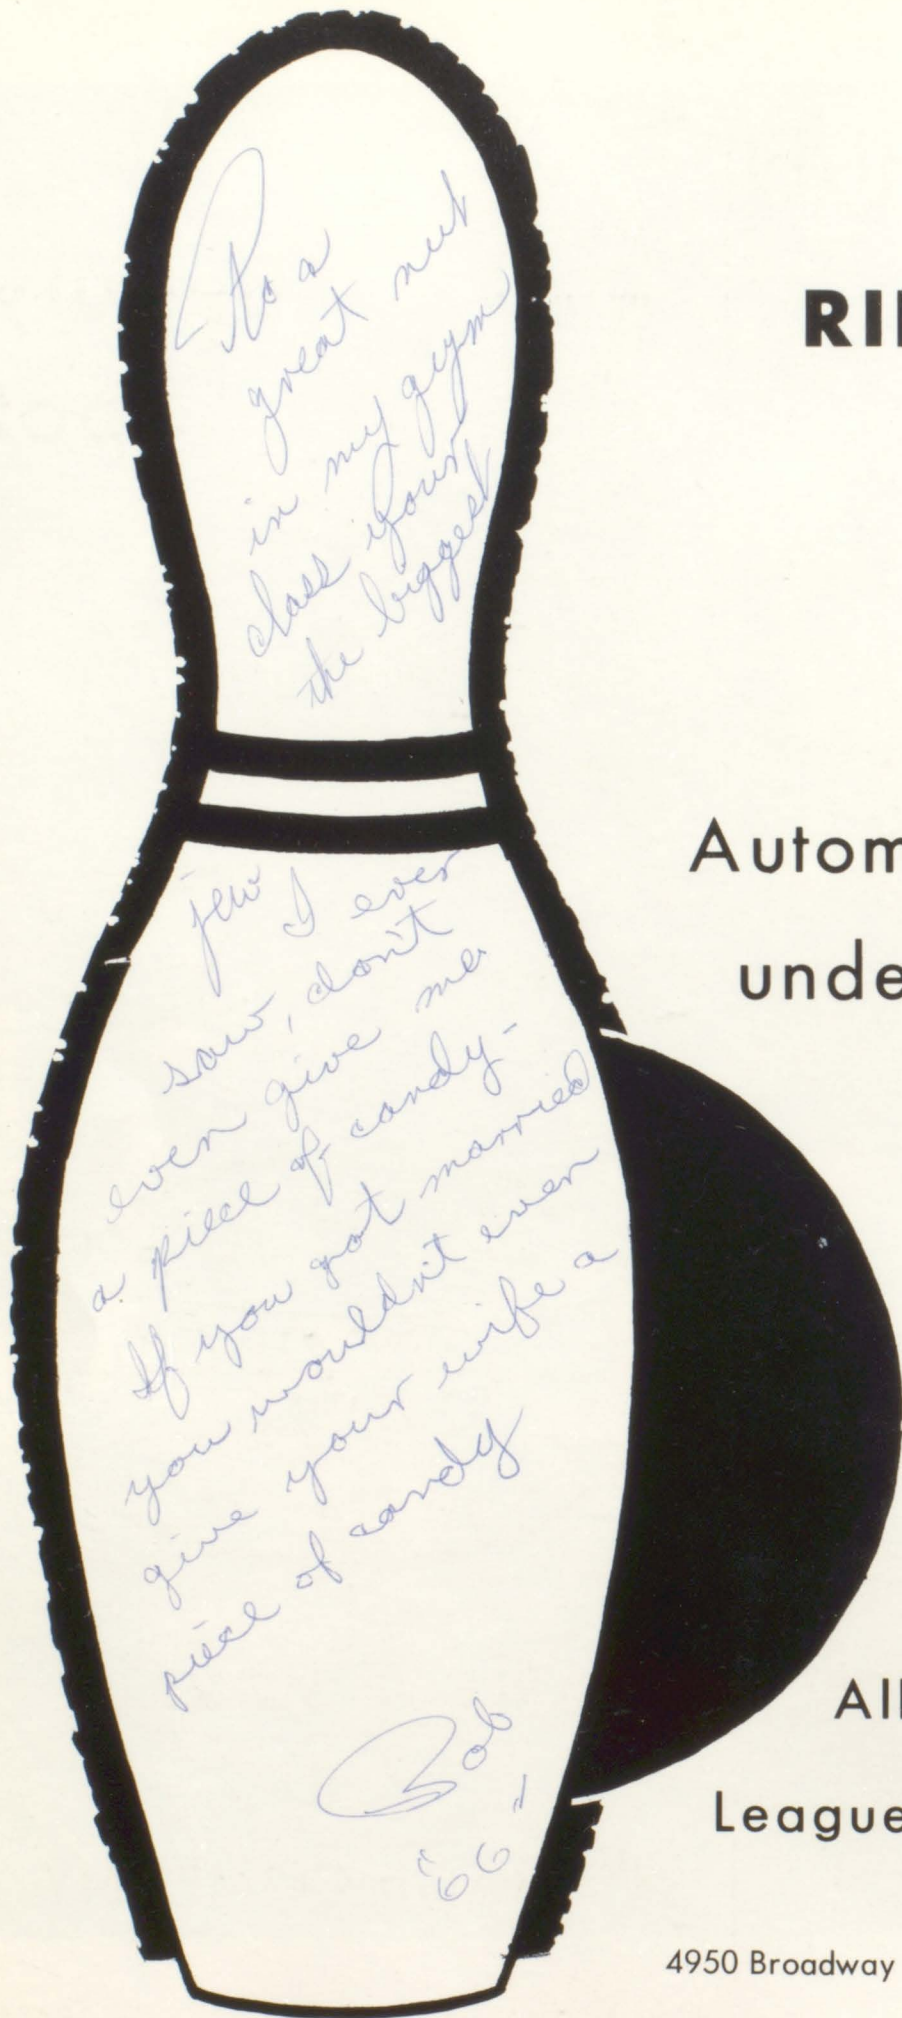 To a
great nut
in my gym
class your
the biggest
jew I ever
saw, don't
even give me
a piece of candy-
If you got married
you wouldn't even
give your wife a
piece of candy
Bob
"66"
RI
Autom
unde
All
League
4950 Broadway